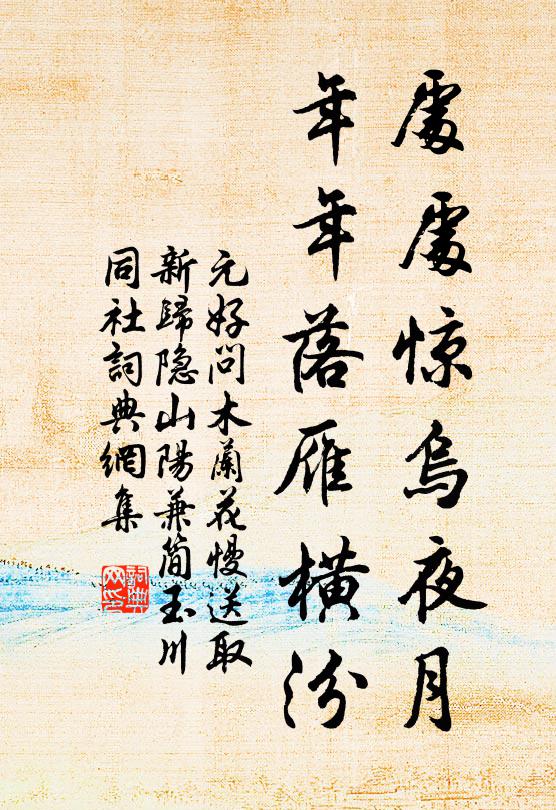 處處惊烏夜月
年年落雁橫汾
元好问木蘭花慢送取
新歸隐山陽兼简玉川
同社詞典網集
詞典网印